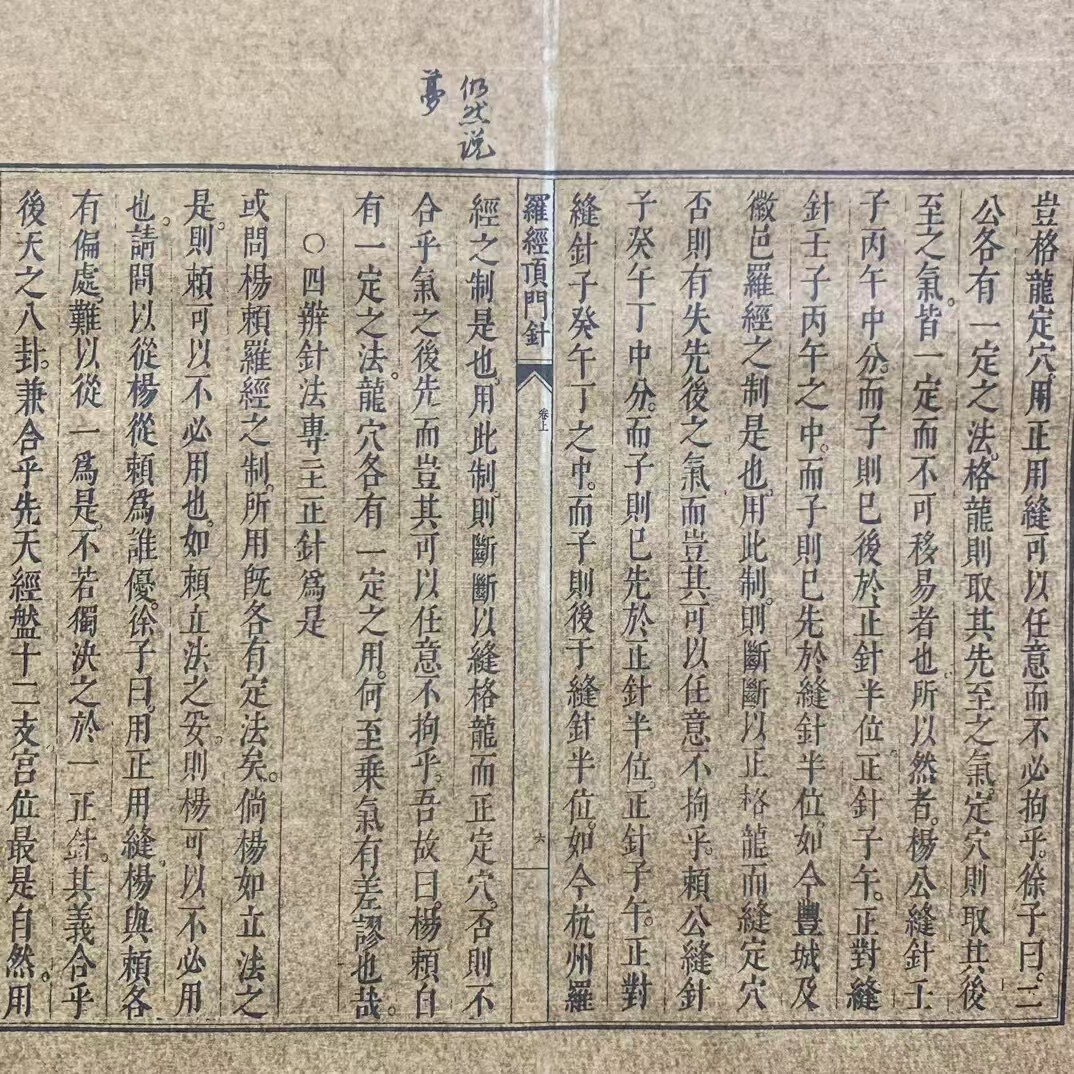 仍然说
夢
豈格龍定穴用正用縫可以任意而不必拘乎。徐子曰。二
公各有一定之法。格龍則取其先至之氣。定穴則取其後
至之氣。皆一定而不可移易者也。所以然者。楊公縫針壬
子丙午中分。而子則已後於正針半位。正針子午。正對縫
針壬子丙午之中。而子則已先於縫針半位。如今豐城及
徽邑羅經之制是也。用此制。則斷斷以正格龍而縫定穴
否則有失先後之氣而豈其可以任意不拘乎。賴公縫針
子癸午丁中分。而子則已先於正針半位。正針子午。正對
縫針子癸午丁之中。而子則後于縫針半位。如今杭州羅
羅經頂門針
卷上
六
經之制是也。用此制。則斷斷以縫格龍而正定穴。否則不
合乎氣之後先而豈其可以任意不拘乎。吾故曰。楊賴自
有一定之法。龍穴各有一定之用。何至乘氣有差謬也哉。
○四辨針法專主正針爲是
或問楊賴羅經之制。所用既各有定法矣。倘楊如立法之
是。則賴可以不必用也。如賴立法之妥。則楊可以不必用
也。請問以從楊從賴爲誰優。徐子曰。用正用縫。楊與賴各
有偏處。難以從一爲是。不若獨決之於一正針。其義合乎
後天之八卦。兼合乎先天經盤十二支宮位最是自然。用